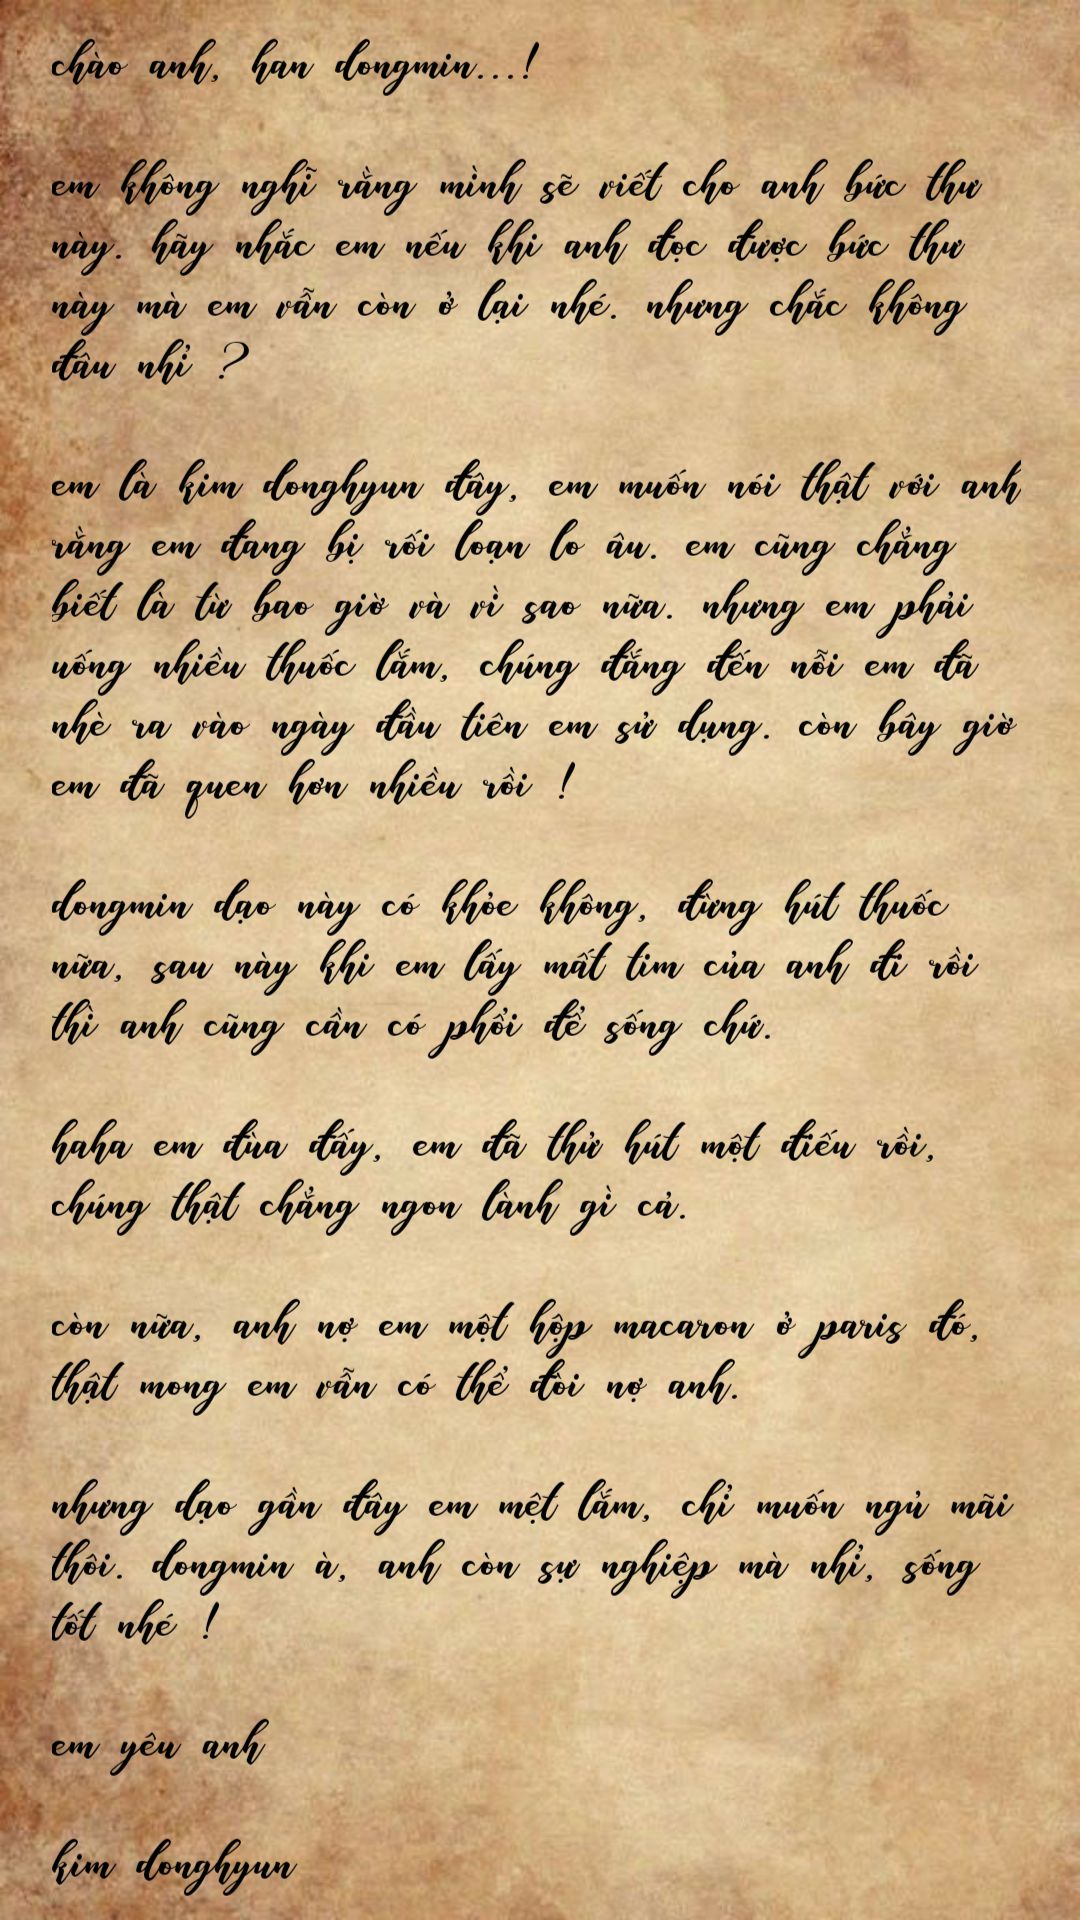 chào anh, han dongmin...!
em không nghĩ rằng mình sẽ viết cho anh bức thư
này. hãy nhắc em nếu khi anh đọc được bức thư
này mà em vẫn còn ở lại nhé. nhưng chắc không
đâu nhỉ ?
em là kim donghyun đây, em muốn nói thật với anh
rằng em đang bị rối loạn lo âu. em cũng chẳng
biết là từ bao giờ và vì sao nữa. nhưng em phải
uống nhiều thuốc lắm, chúng đắng đến nỗi em đã
nhè ra vào ngày đầu tiên em sử dụng. còn bây giờ
em đã quen hơn nhiều rồi !
dongmin dạo này có khỏe không, đừng hút thuốc
nữa, sau này khi em lấy mất tim của anh đi rồi
thì anh cũng cần có phổi để sống chứ.
haha em đùa đấy, em đã thử hút một điếu rồi,
chúng thật chẳng ngon lành gì cả.
còn nữa, anh nợ em một hộp macaron ở paris đó,
thật mong em vẫn có thể đòi nợ anh.
nhưng dạo gần đây em mệt lắm, chỉ muốn ngủ mãi
thôi. dongmin à, anh còn sự nghiệp mà nhỉ, sống
tốt nhé !
em yêu anh
kim donghyun